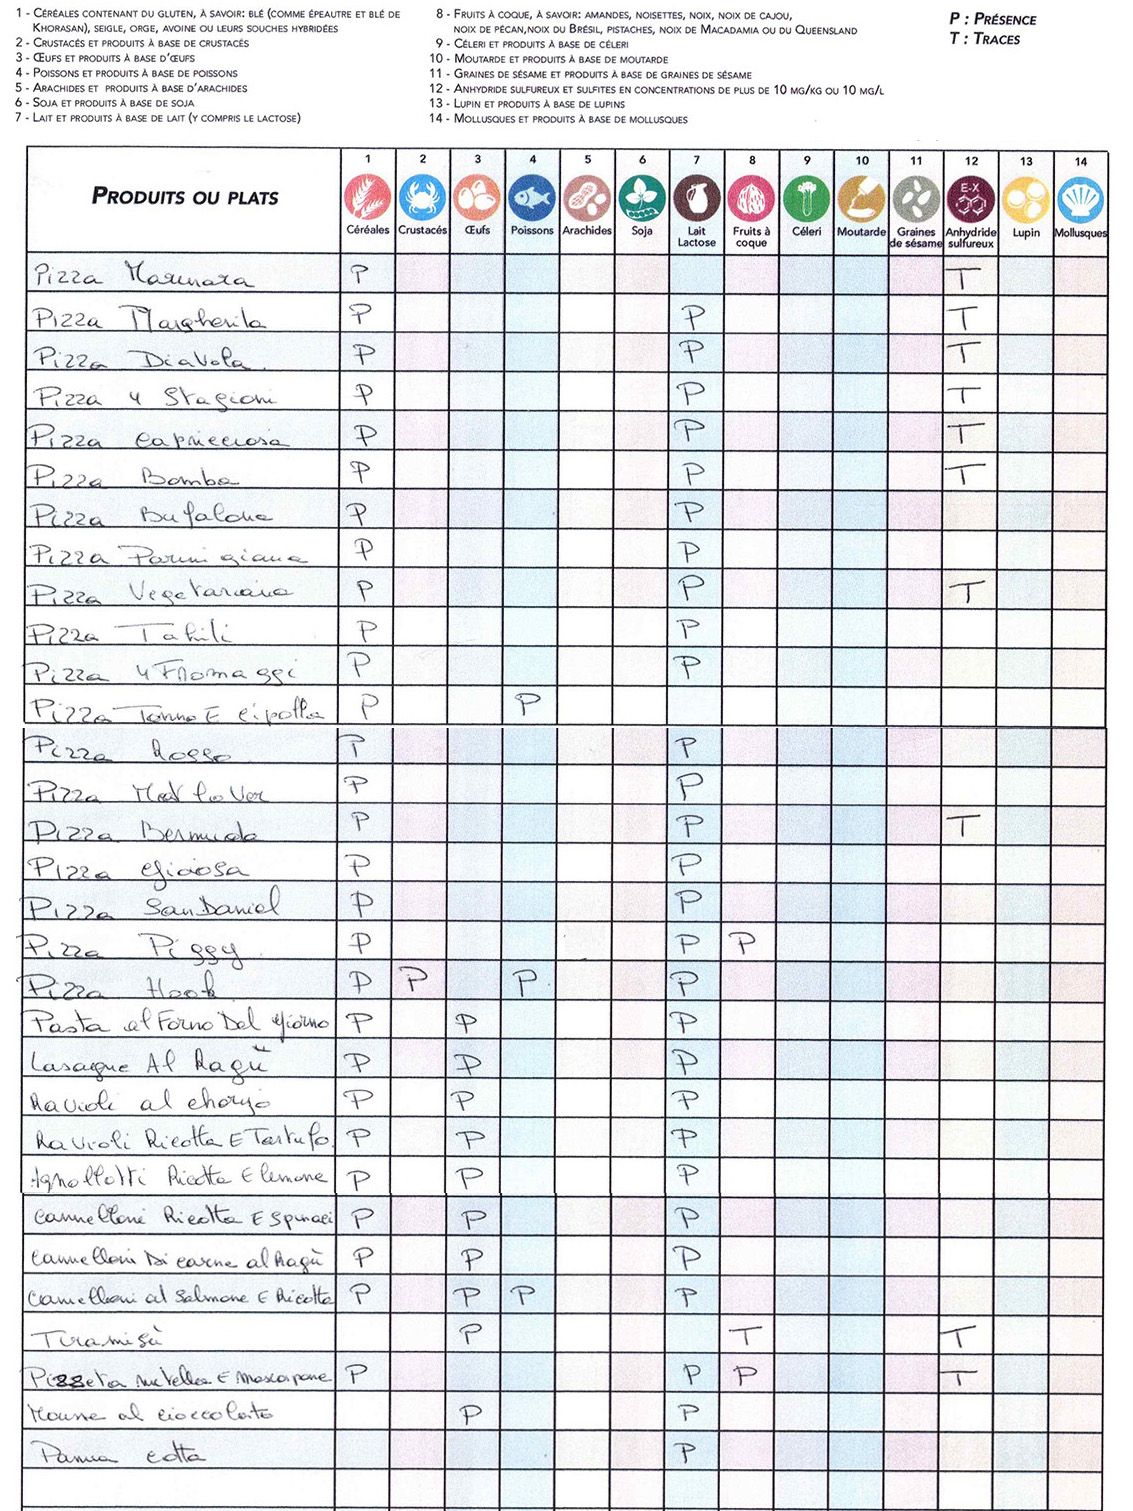 1 - Céréales contenant du gluten, à savoir: blé (comme épeautre et blé de
Khorasan), seigle, orge, avoine ou leurs souches hybridées
2 - Crustacés et produits à base de crustacés
3 - Œufs et produits à base d'œufs
4 - Poissons et produits à base de poissons
5 - Arachides et produits à base d'arachides
6 - Soja et produits à base de soja
7 - Lait et produits à base de lait (y compris le lactose)
8 - Fruits à coque, à savoir: amandes, noisettes, noix, noix de cajou,
noix de pécan,noix du Brésil, pistaches, noix de Macadamia ou du Queensland
9 - Céleri et produits à base de céleri
10 - Moutarde et produits à base de moutarde
11 - Graines de sésame et produits à base de graines de sésame
12 - Anhydride sulfureux et sulfites en concentrations de plus de 10 mg/kg ou 10 mg/l
13 - Lupin et produits à base de lupins
14 - Mollusques et produits à base de mollusques
P : Présence
T : Traces
Produits ou plats
1 2 3 4 5 6 7 8 9 10 11 12 13 14
E-X
Céréales Crustacés Œufs Poissons Arachides Soja Lait Lactose Fruits à coque Céleri Moutarde Graines de sésame Anhydride sulfureux Lupin Mollusques
Pizza Marinara P T
Pizza Margherita P P T
Pizza Diavola P P T
Pizza 4 Stagioni P P T
Pizza Capricciosa P P T
Pizza Bomba P P T
Pizza Bufalona P P
Pizza Parmigiana P P
Pizza Vegetariana P P T
Pizza P P
Pizza 4 Fromaggi P P
Pizza Tonno E Cipolla P P
Pizza Rosso P P
Pizza P P
Pizza Bermuda P P T
Pizza Gioiosa P P
Pizza San Daniel P P
Pizza Piggy P P P
Pizza Hook P P P P
Pasta al Forno Del Giorno P P P
Lasagne Al Ragù P P P
Ravioli al P P P
Ravioli Ricotta E Tartufo P P P
Agnollotti Ricotta E Limone P P P
Cannelloni Ricotta E Spinaci P P P
Cannelloni Di carne al Ragù P P P
Cannelloni al Salmone E Ricotta P P P P
Tiramisù P T T
Pizzeta Nutella E Mascarpone P P P T
Mousse al cioccolato P P
Panna cotta P